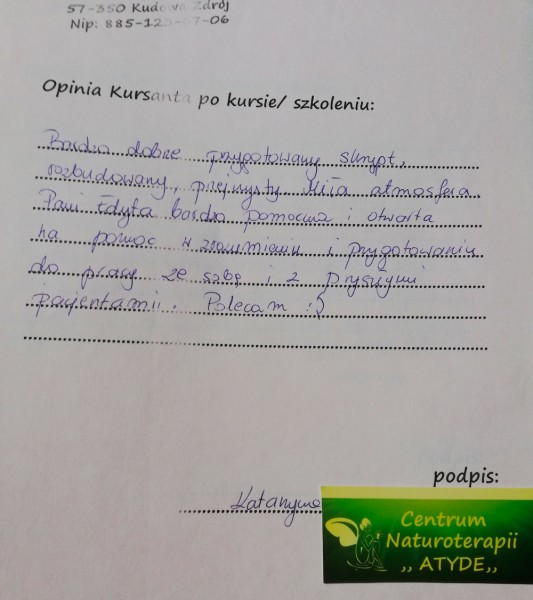 57-350 Kudowa Zdrój
Nip: 885-12 -06
Opinia Kursanta po kursie/ szkoleniu:
Bardzo dobrze przygotowany skrypt,
rozbudowany, przejrzysty Miła atmosfera
Pani Edyta bardzo pomocna i otwarta
na pomoc w zrozumieniu i przygotowaniu
do pracy ze sobą i z przyszłymi
pacjentami. Polecam :)
podpis:
Katarzyna
Centrum
Naturoterapii
,, ATYDE,,